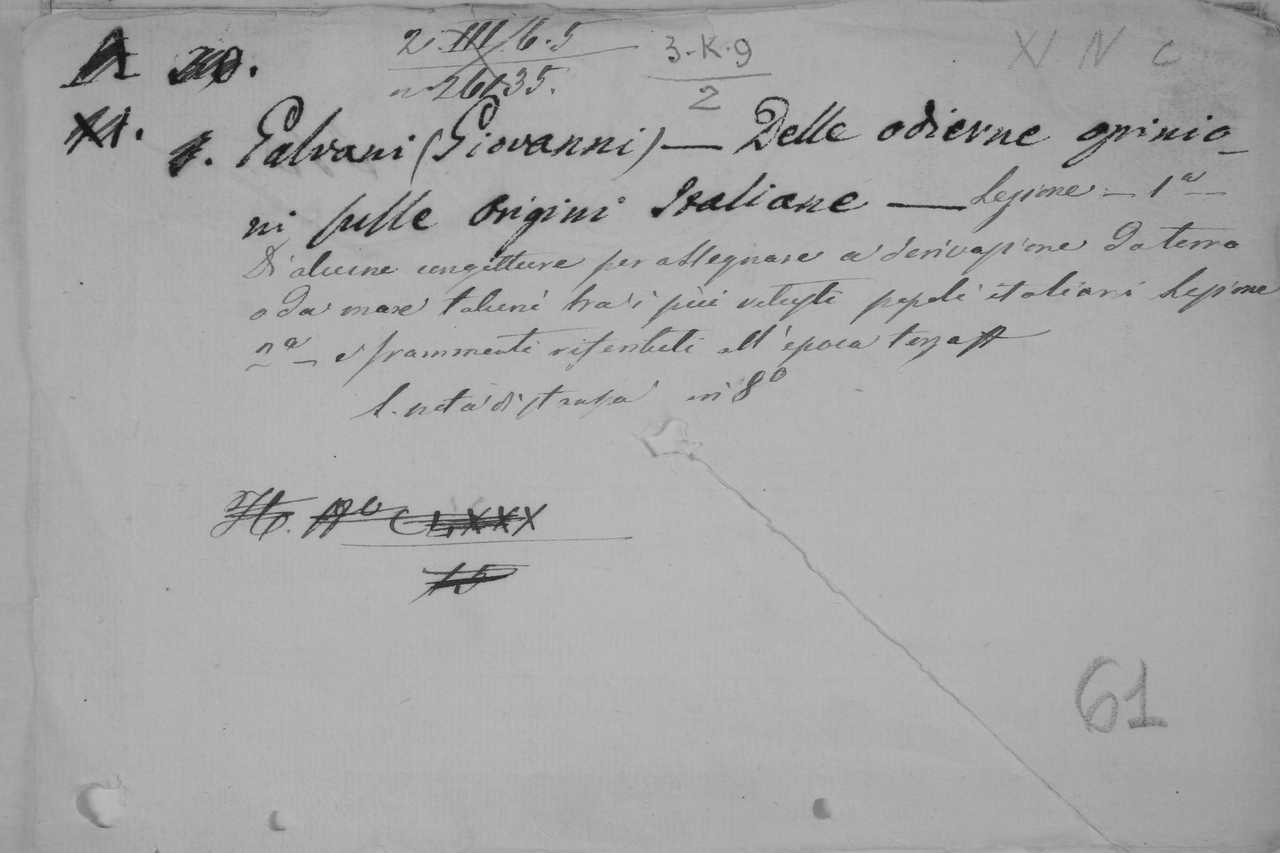 2.III/6.5
3-K-9
XI N C
n 26135.
2
XI. Galvani (Giovanni) — Delle odierne opinio-
ni sulle origini Italiane — Lezione — 1ª —
Di alcune congetture per assegnare a derivazione da terra
o da mare taluni tra i più vetusti popoli italiani Lezione
2ª — e frammenti riserbati all'epoca terza
S. nota di stampa in 8º
Nº CLXXX
61